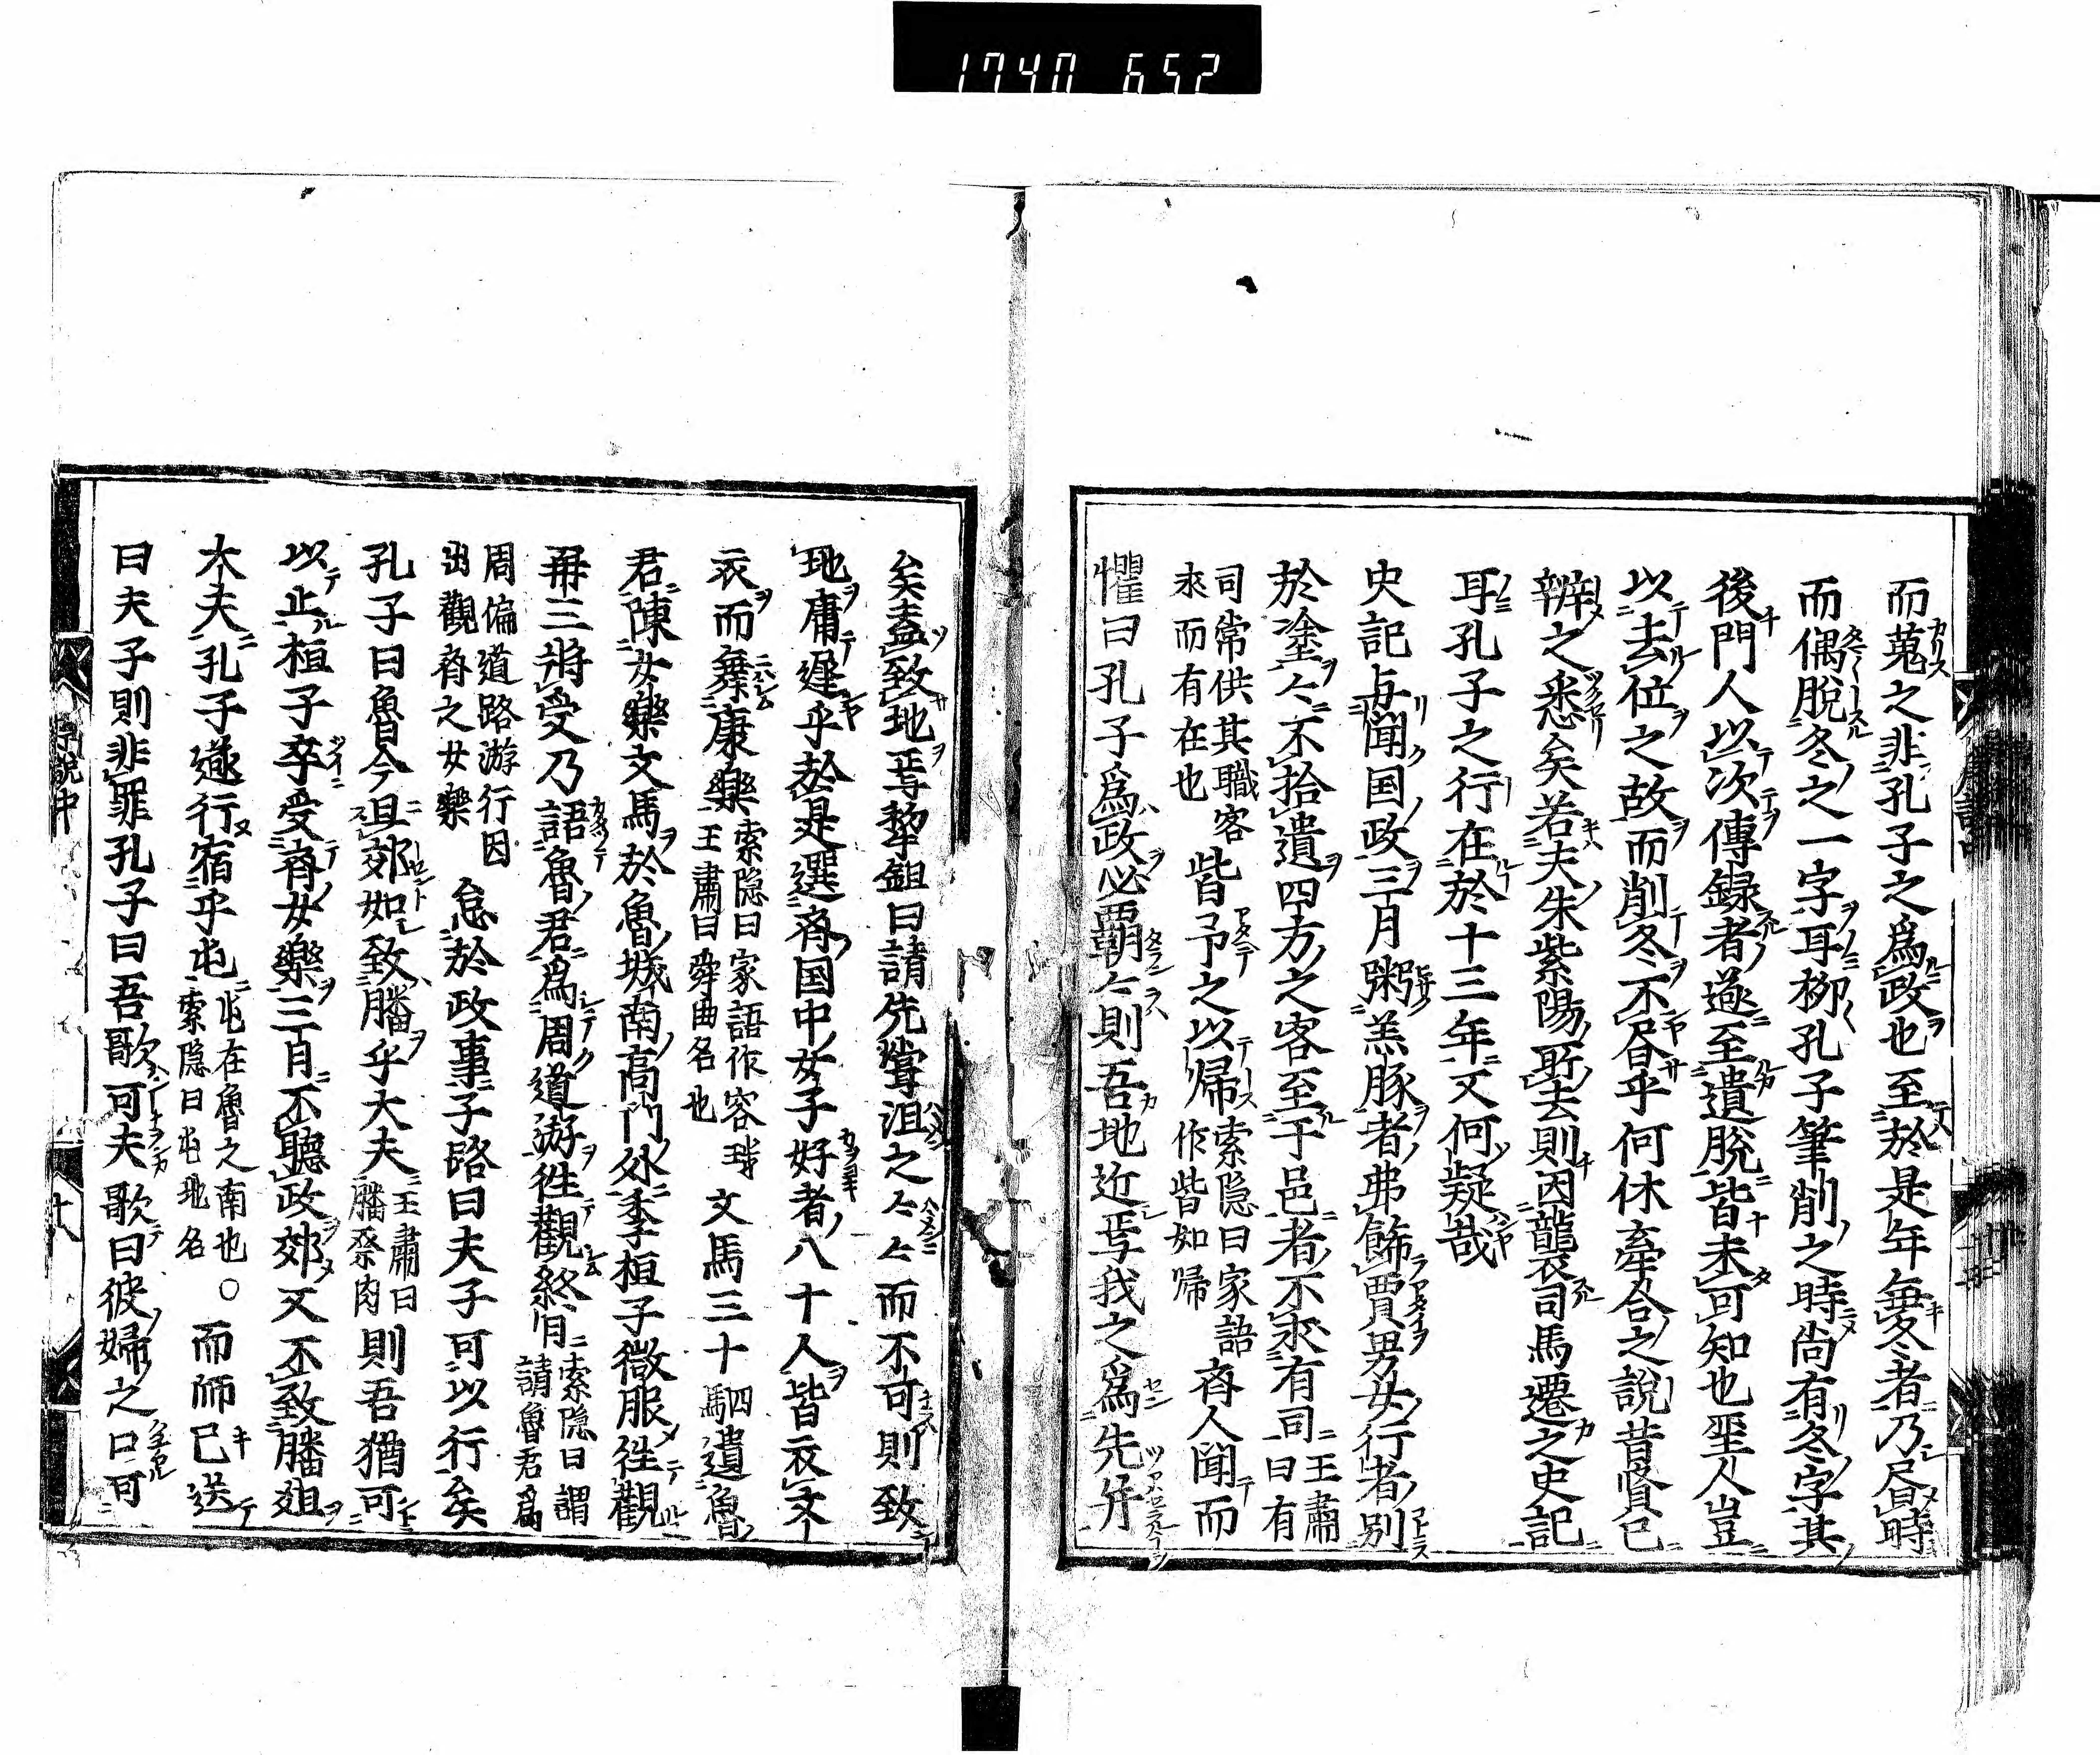 1740 652
而蒐之非孔子之爲政也至於是年無冬者乃昼時
而偶脫冬之一字耳柳孔子筆削之時尚有冬字其
後門人以次傳録者遂至遺脫皆未可知也聖人豈
以去位之故而削冬不昼乎何休牽合之說昔賢已
辨之悉矣若夫朱紫陽所去則因襲司馬遷之史記
耳孔子之行在於十三年又何疑哉
史記与聞国政三月粥羔豚者弗飾賈男女行者別
於塗〻不拾遺四方之客至于邑者不求有司
王肅曰有司常供其職客求而有在也
皆予之以帰
索隠曰家語作皆如帰
斉人聞而
懼曰孔子爲政必覇〻則吾地近焉我之爲先并
矣盍致地焉犂鉏曰請先嘗沮之〻〻而不可則致
地庸遲乎於是選斉国中女子好者八十人皆衣文
衣而舞康樂
索隠曰家語作容璣王肅曰舜曲名也
文馬三十
四馬
遺魯
君陳女樂文馬於魯城南高門外季桓子微服往觀
再三将受乃語魯君爲周道游往觀終日
索隠曰謂請魯君爲
周偏道路游行因出觀斉之女樂
怠於政事子路曰夫子可以行矣
孔子曰魯今且郊如致膰乎大夫
王肅曰膰祭肉
則吾猶可
以止桓子卒受斉女樂三日不聽政郊又不致膰俎
大夫孔子遂行宿乎屯
屯在魯之南也○索隠曰屯地名
而師已送
曰夫子則非罪孔子曰吾歌可夫歌曰彼婦之口可
序說中
十